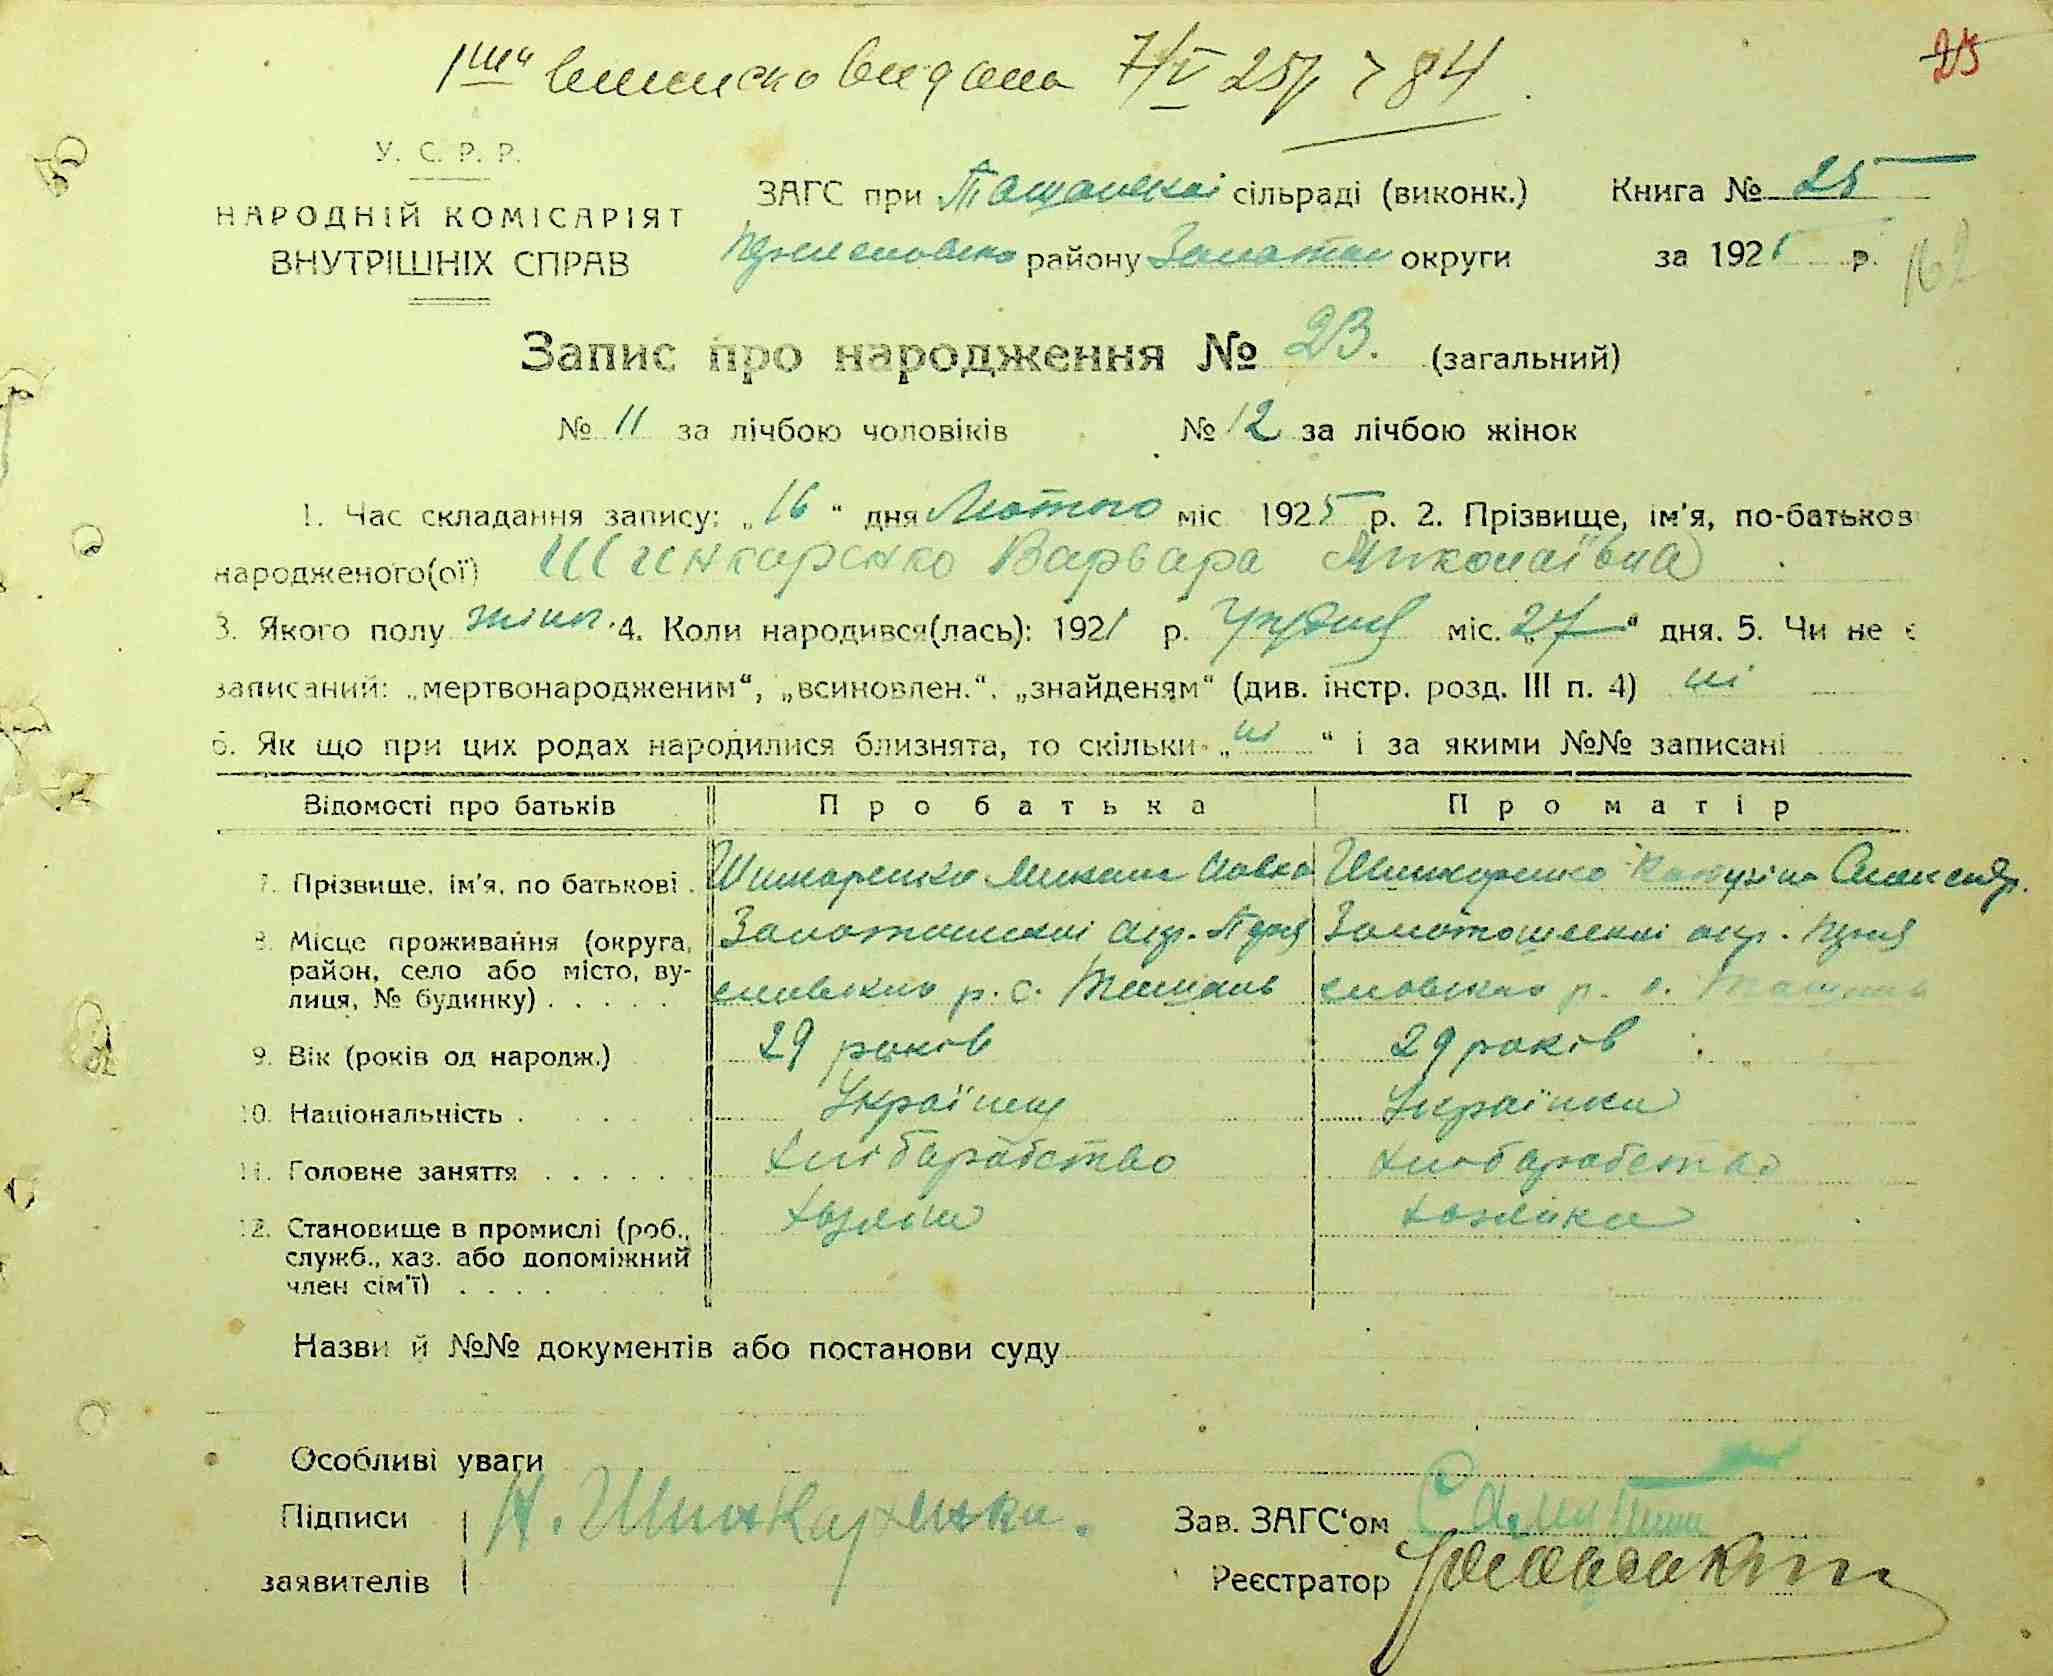 виписка видана 7/V 25р 84
25
У. С. Р. Р.
НАРОДНІЙ КОМІСАРІЯТ
ВНУТРІШНІХ СПРАВ
ЗАГС при Ташанскої сільраді (виконк.)
району Золотон округи
Книга № 25
за 1925 р.
162
Запис про народження № 23. (загальний)
№ 11 за лічбою чоловіків № 12 за лічбою жінок
1. Час складання запису: „16" дня Лютого міс 1925 р. 2. Прізвище, ім'я, по-батьков
народженого(ої) Шинкаренко Варвара Миколаївна
3. Якого полу жіноч. 4. Коли народився(лась): 1921 р. Грудня міс. „27" дня. 5. Чи не є
записаний: „мертвонародженим", „всиновлен.", „знайденям" (див. інстр. розд. III п. 4) ні
6. Як що при цих родах народилися близнята, то скільки „ні" і за якими №№ записані
Відомості про батьків Про батька Про матір
7. Прізвище, ім'я, по батькові . Шинкаренко Микола Шинкаренко Катерина Олександр.
8. Місце проживання (округа, Золотоніської окр. Золотоношської окр.
район, село або місто, ву- р. с. Ташань р. с. Ташань
лиця, № будинку) . . . . .
9. Вік (років од народж.) 29 років 29 років
10. Національність . Українец Українка
11. Головне заняття . . . . . . Хліборобство Хліборобство
12. Становище в промислі (роб., Хазяїн Хазяйка
служб., хаз. або допоміжний
член сім'ї) . . . .
Назви й №№ документів або постанови суду
Особливі уваги
Підписи Н. Шинкаренко.
заявителів
Зав. ЗАГС'ом
Реєстратор